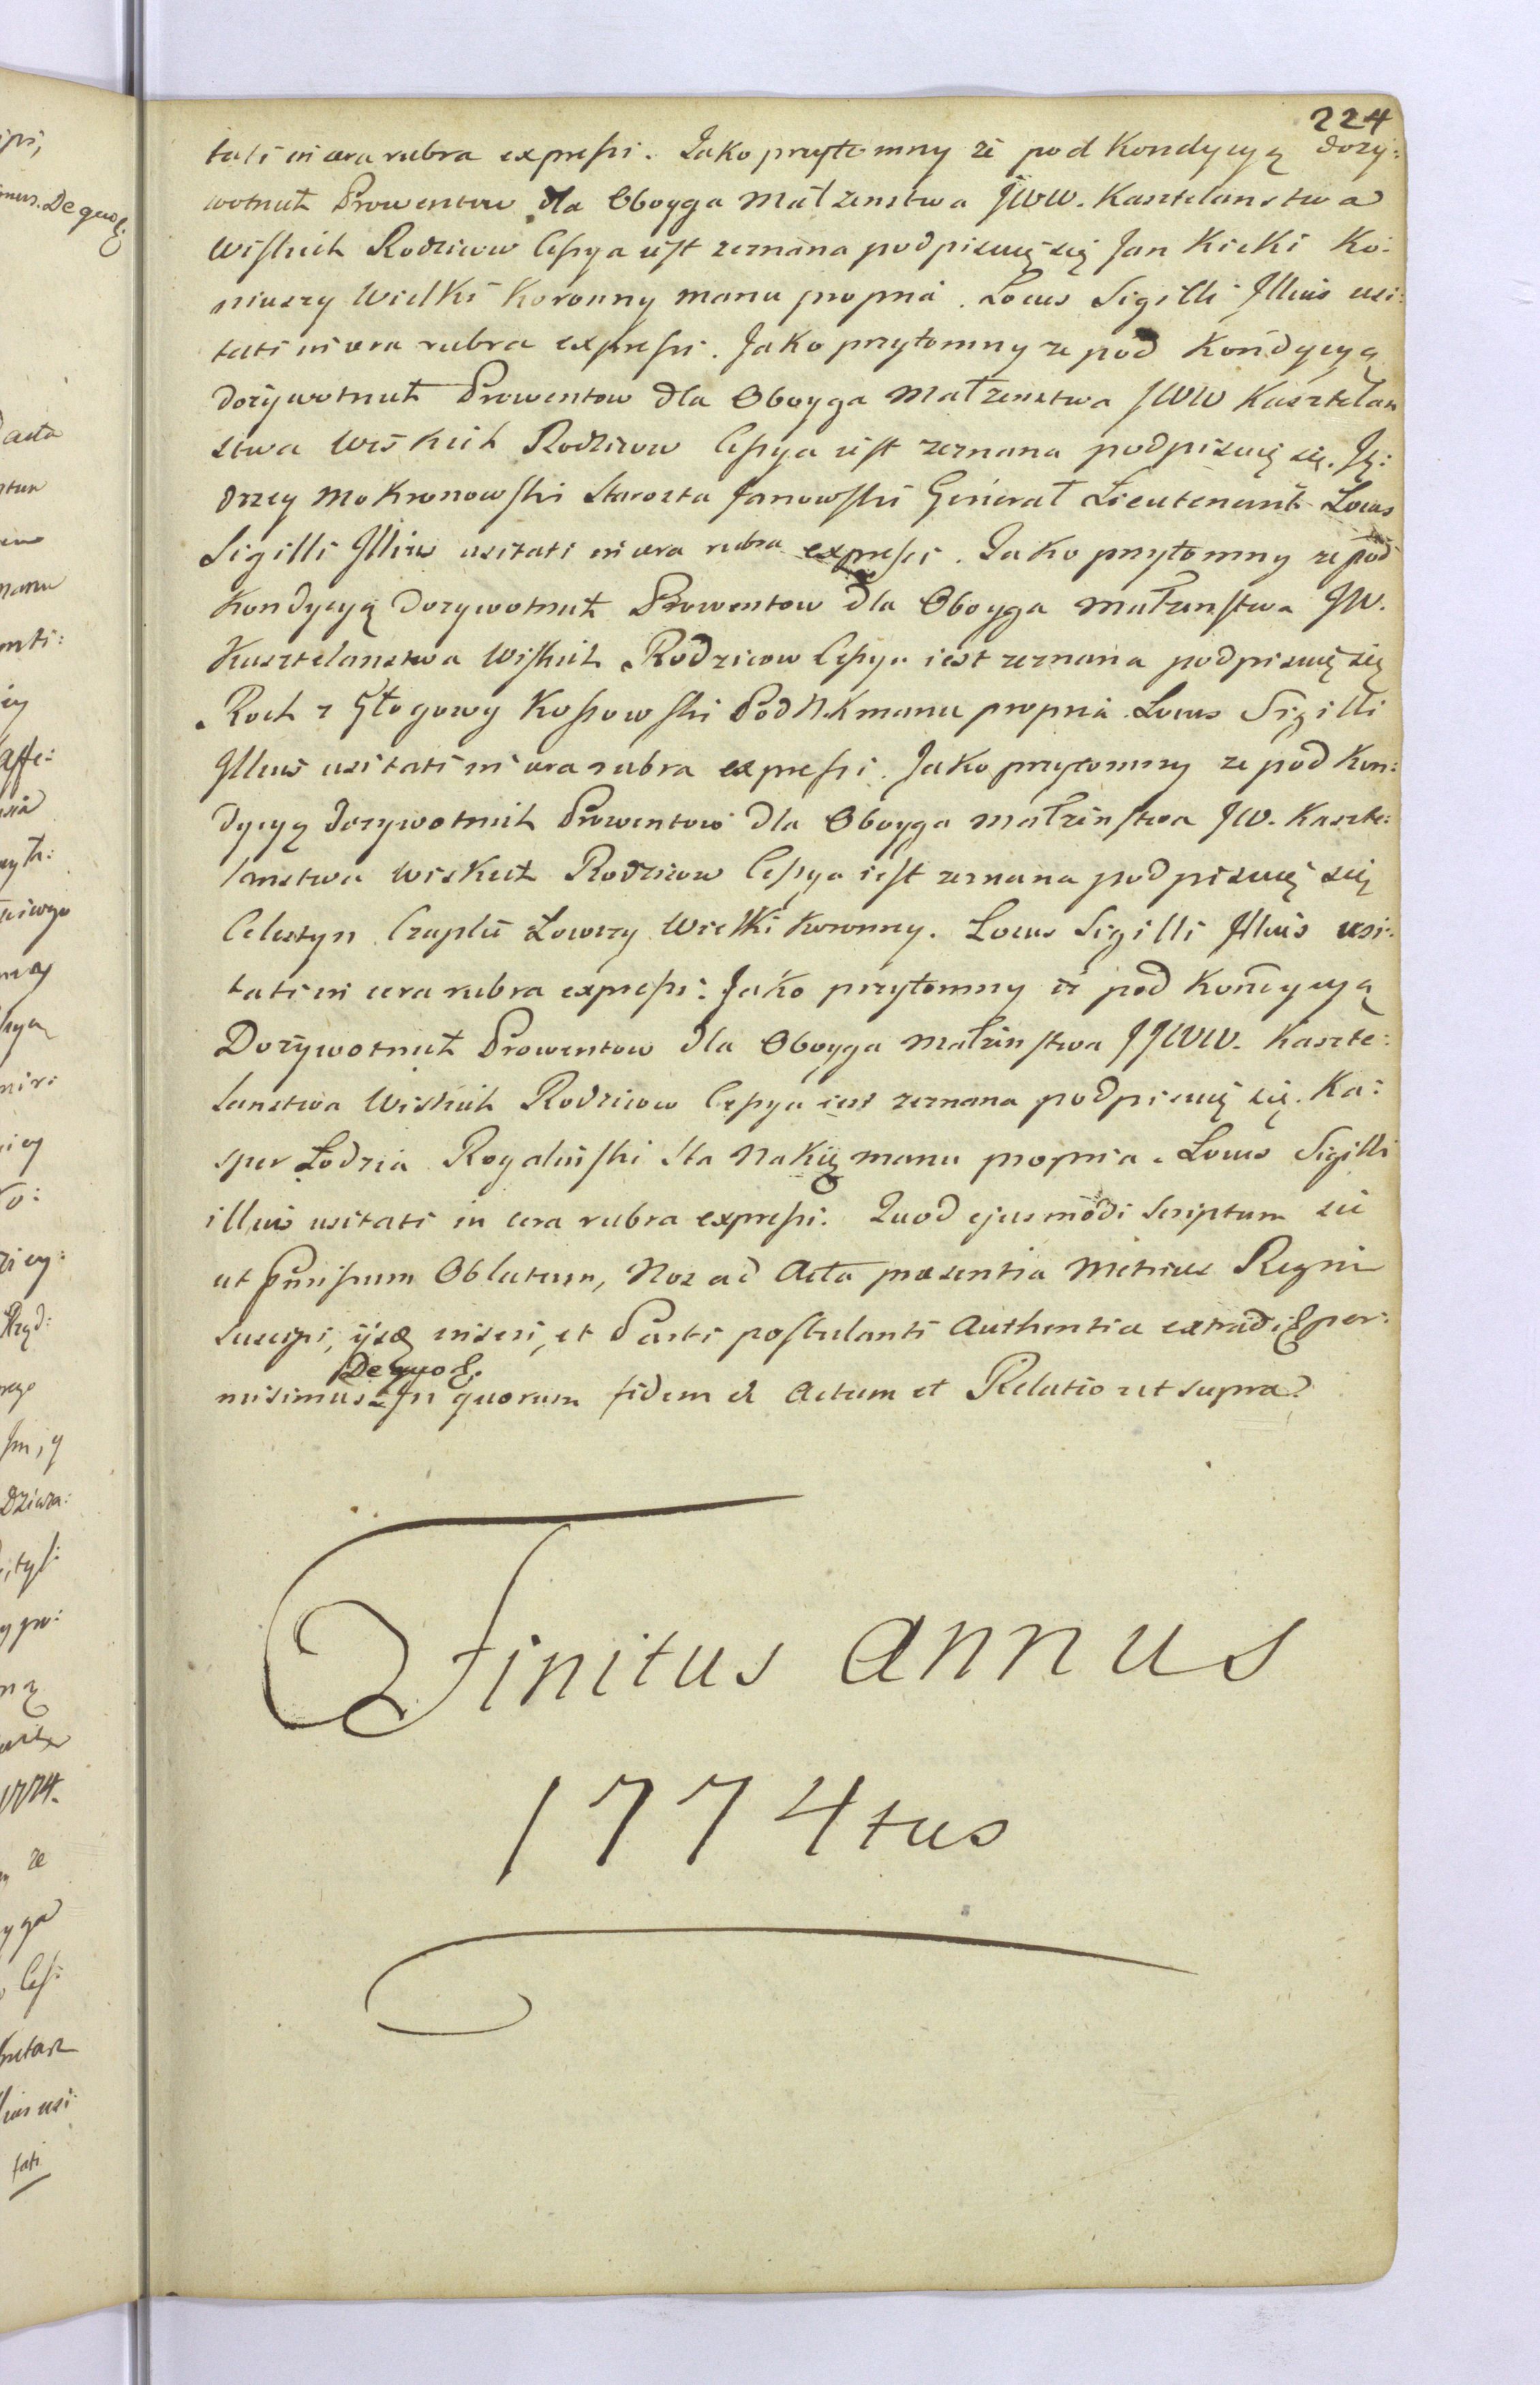 224
tati in cera rubra expressi. Jako przytomny że pod Kondycyą dozy:
wotnich Prowentow dla Oboyga Małzenstwa JWW. Kasztelanstwa
Wiskich Rodzicow Cessya iest zeznana podpisuię się Jan Kicki Ko:
niuszy Wielki Koronny manu propria. Locus Sigilli Illius usi:
tati in cera rubra expressi. Jako przytomny ze pod Kondycyą
dożywotnich Prowentow dla Oboyga Małzenstwa JWW Kasztelan
stwa Wiskich Rodzicow Cessya iest zeznana podpisuię się. Ję:
drzey Mokronowski Starosta Janowski Generał Lieutenant Locus
Sigilli Illius usitati in cera rubra expressi. Jako przytomny ze pod
Kondycyą dozywotnich Prowentow dla Oboyga Małzenstwa JW.
Kasztelanstwa Wiskich Rodzicow Cessya iest zeznana podpisuię się
Roch z Głogowy Kossowski Pod N.K manu propria Locus Sigilli
Illius usitati in cera rubra expressi. Jako przytomny ze pod Kon:
dycyą dozywotnich Prowentow dla Oboyga Małzenstwa JW. Kaszte:
lanstwa Wiskich Rodzicow Cessya iest zeznana podpisuię się
Celestyn Czaplic Łowczy Wielki Koronny. Locus Sigilli Illius usi:
tati in cera rubra expressi. Jako przytomny iż pod Kondycyą
Dożywotnich Prowentow dla Oboyga Małżenstwa JJWW. Kaszte:
lanstwa Wiskich Rodzicow Cessya iest zeznana podpisuię się. Ka:
sper Łodzia Rogalinski Sta Nakię manu propria. Locus Sigilli
illius usitati in cera rubra expressi. Quod ejusmodi scriptum sic
ut Oblatum, Nos ad Acta praesentia Metrices Regni
suscipi, ijsq inseri, et Parti postulanti Authentice extradi per:
De quo
misimus In quorum fidem Actum et Relatio ut supra
Finitus annus
1774tus